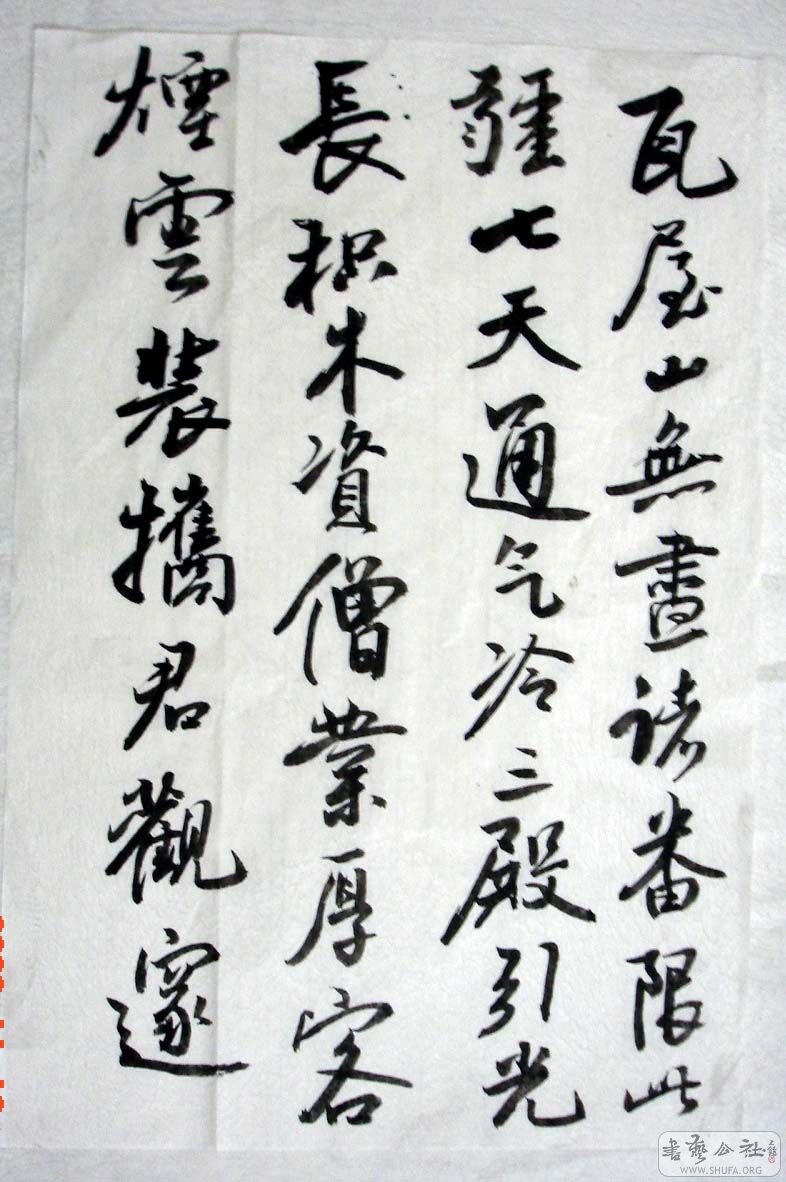 瓦屋山無盡諸番限此
疆七天通气冷三殿引光
長枳木資僧業厚客
煙雲裝攜君觀邃
書藝公社
WWW.SHUFA.ORG